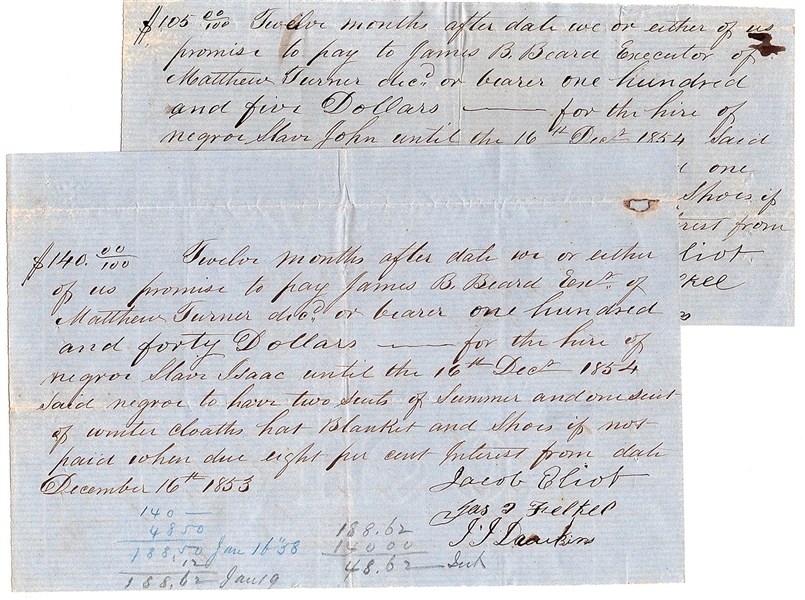 $105 00/100 Twelve months after date we or either of us
promise to pay to James B. Beard Executor of
Matthew Turner decd or bearer one hundred
and five Dollars — for the hire of
negroe Slave John until the 16th Decr 1854 Said
one
Shoes if
rest from
liot
lkel
$140. 00/100 Twelve months after date we or either
of us promise to pay James B. Beard Exr. of
Matthew Turner decd or bearer one hundred
and forty Dollars — for the hire of
negroe Slave Isaac until the 16th Decr 1854
Said negroe to have two suits of Summer and one suit
of winter cloaths hat Blanket and Shoes if not
paid when due eight per cent Interest from date
December 16th 1853
Jacob Eliot
Jas Felkel
140 —
48 50
188,50 Jan 16" 58
12
188,62 Jan 19
188.62
140 00
48.62 — Int